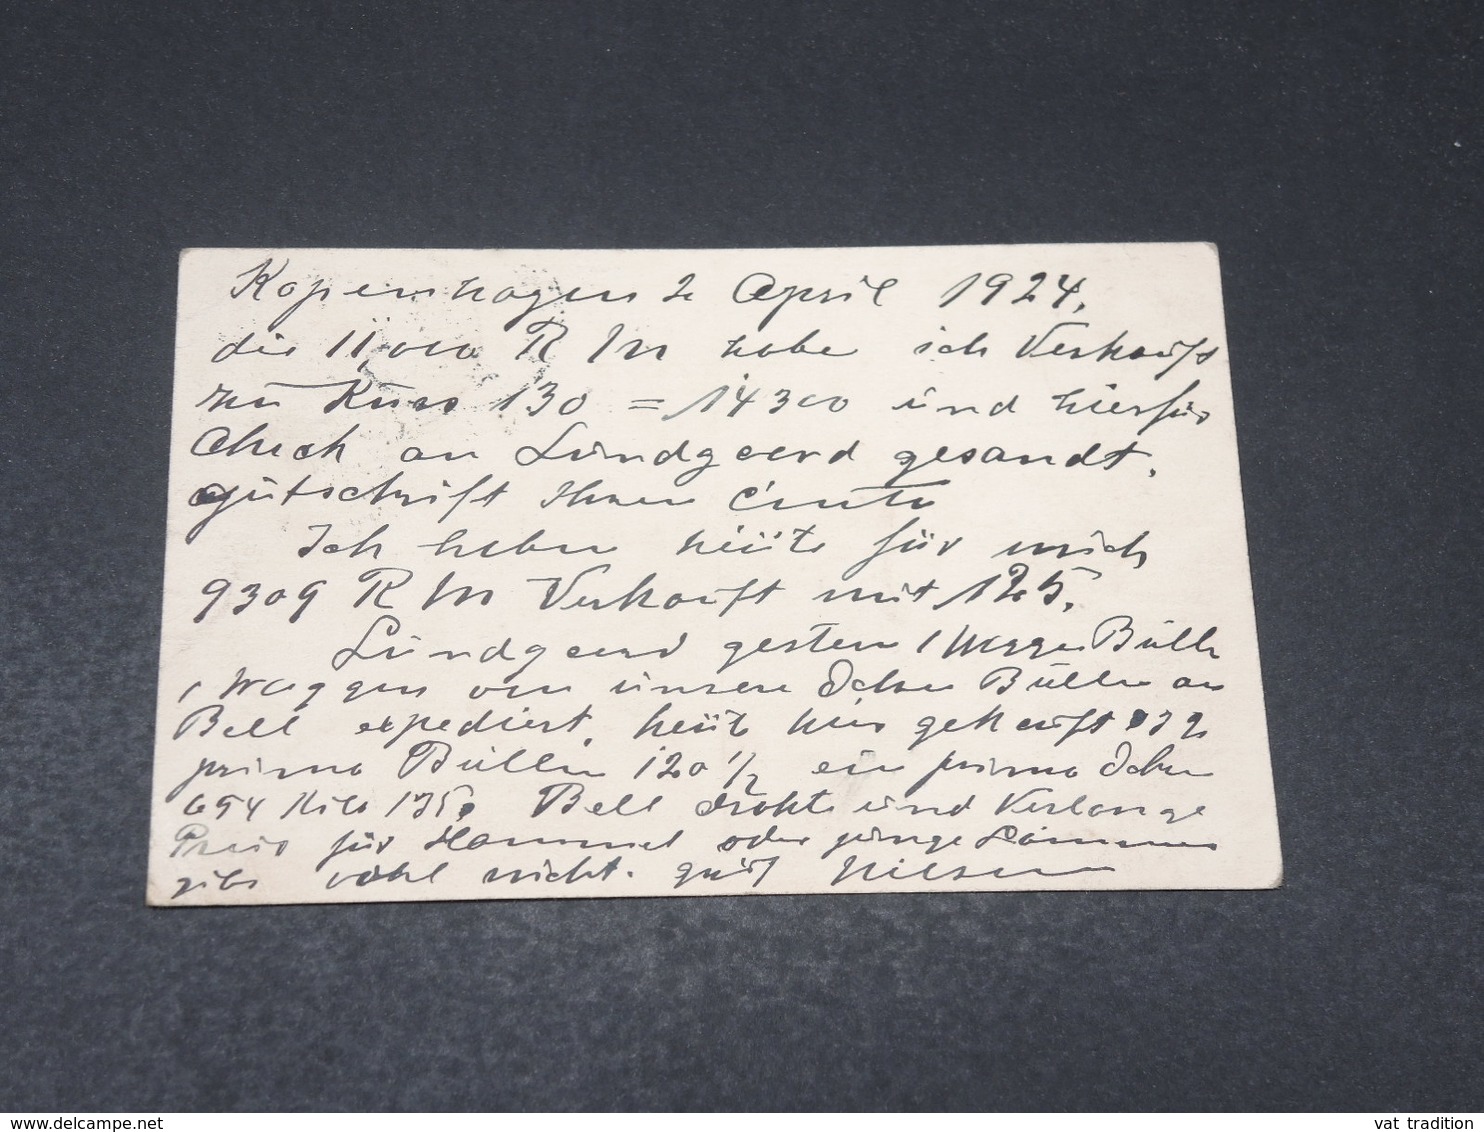 Kopenhagen 2 April 1924,
die 11,000 R M habe ich Verkauft
zu Kurs 130 = 14300 und hierfür
Check an Lundgaard gesandt,
gutschrift Ihnen Conto
Ich habe heute für mich
9309 R M Verkauft mit 125,
Lundgaard gestern 1 Bulle
1 Waggon von unsere Bulle an
Bell expediert, heute hier gekauft
prima Bulle 120 1/2 ein prima
694 Kilo 135, Bell drohte und Verlange
Preis für Hammel oder junge Lämmer
gibs wohl nicht. gruss Nielsen
www.delcampe.net
vat tradition